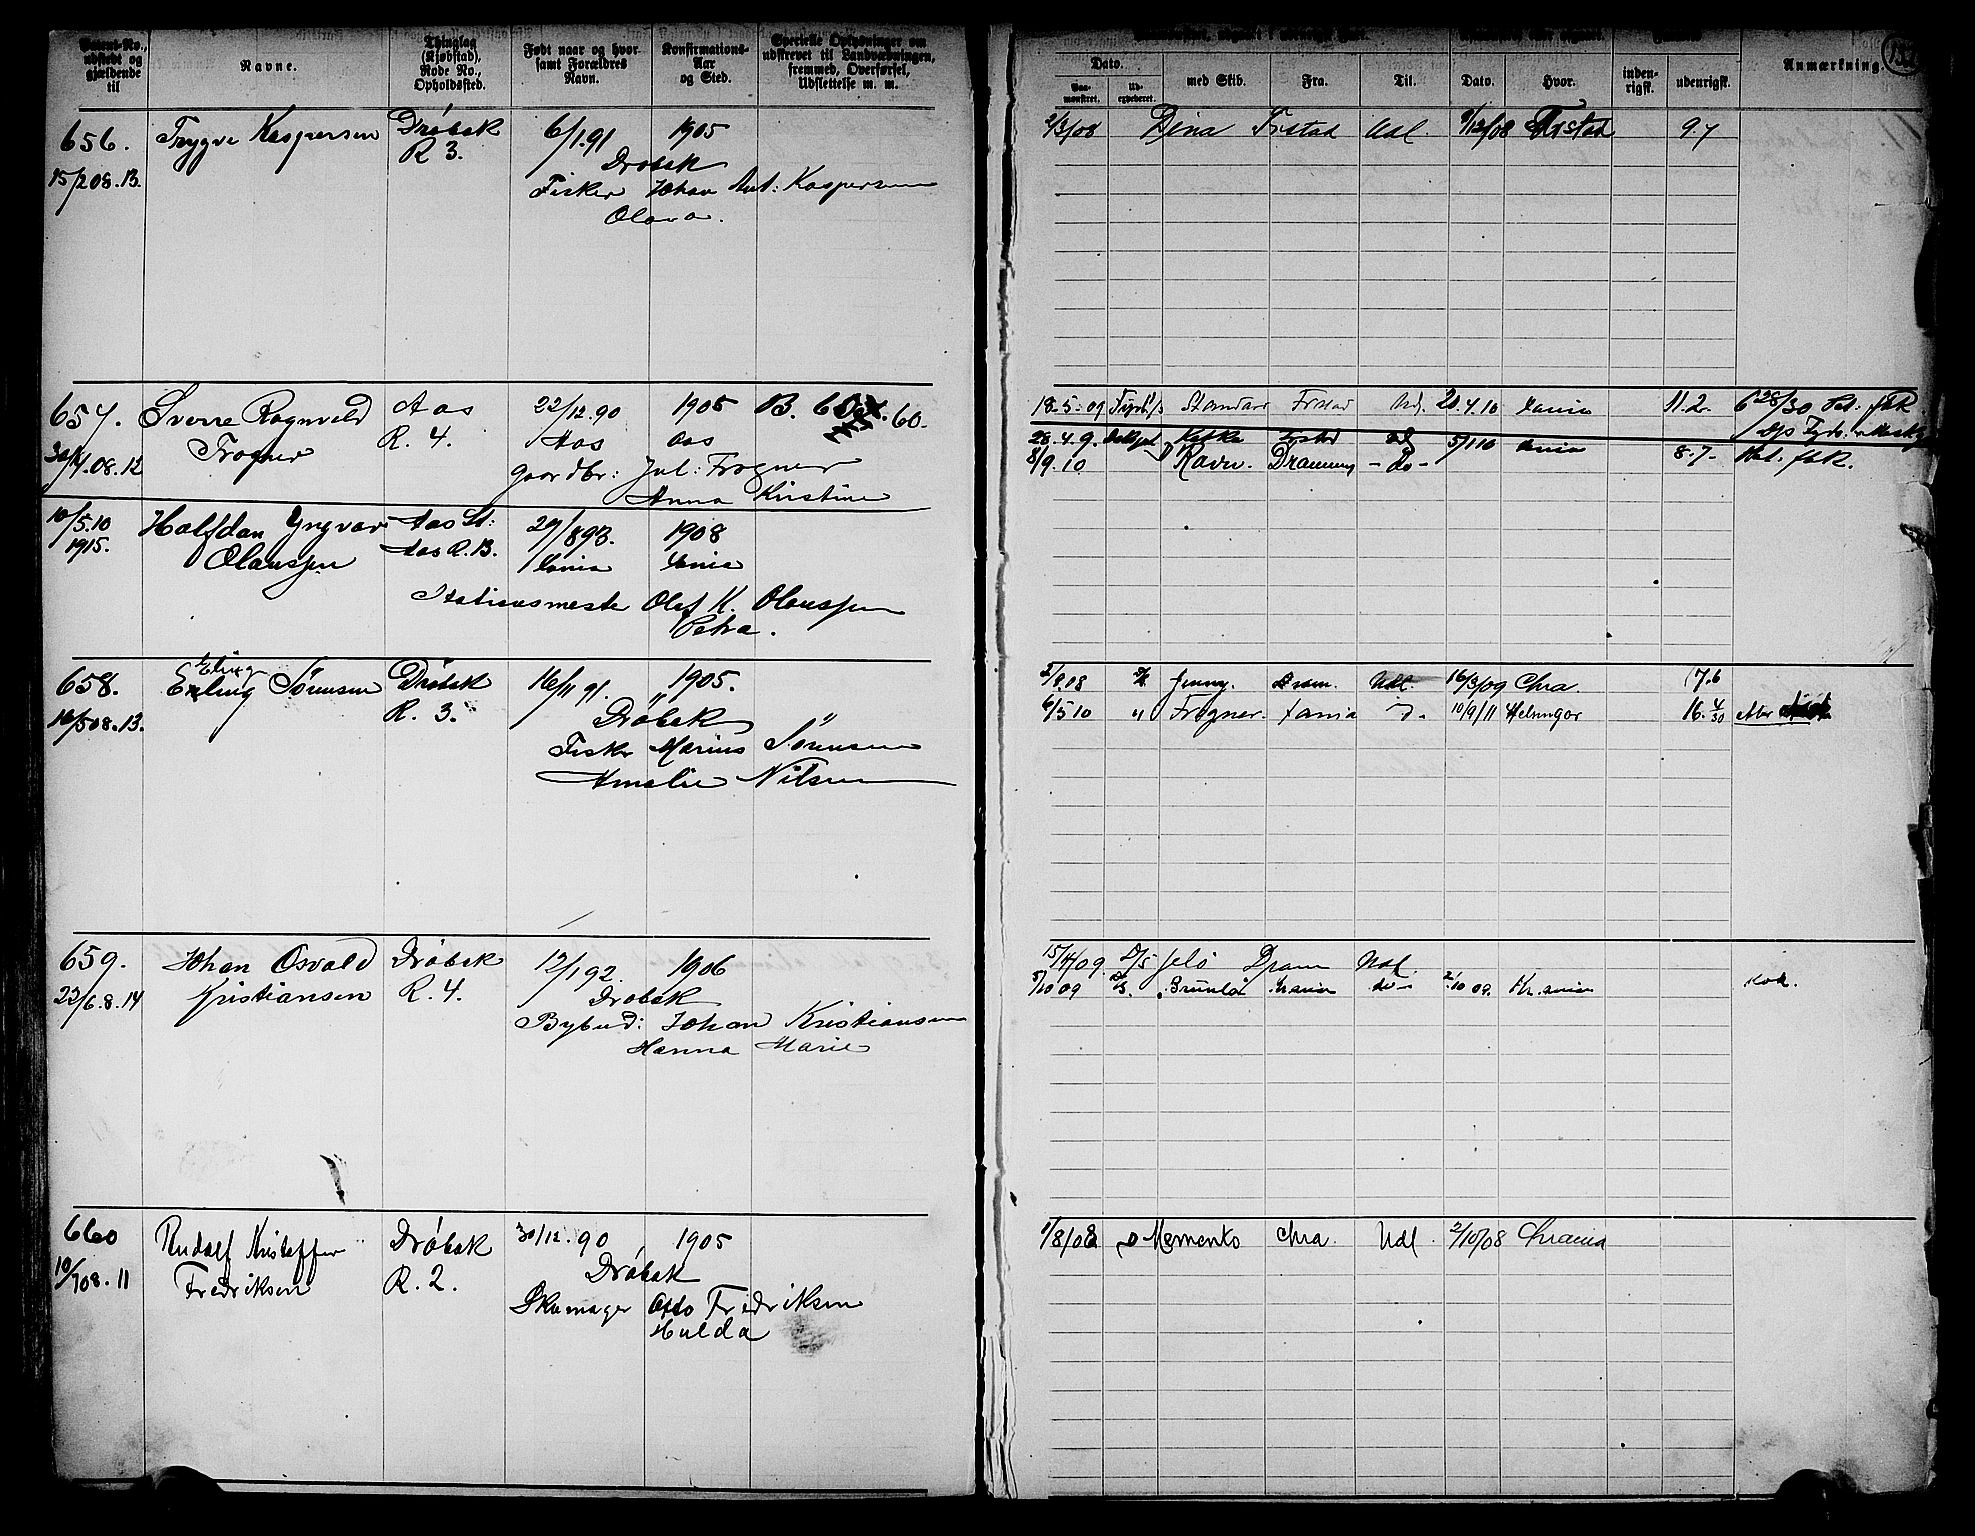 Patent-No., udstedt og gjældende til
Navne.
Thinglag (Kjøbstad), Rode No., Opholdssted.
Født naar og hvor samt Forældres Navn.
Konfirmations-Aar og Sted.
Specielle Oplysninger om udskrevet til Landværningen, fremmed, Overførsel, Udslettelse m. m.
Dato.
med Skib.
Fra.
Til.
Dato.
Hvor.
inden-rigsk.
udenrigsk.
Anmærkning.
656. Trygve Kaspersen Drøbak 6/1.91 1905
R 3.
15/2 08. 13. Drøbak
Fisker Johan Ant: Kaspersen
Olava.
2/3/08 Dina Frstad Udl. 9/12/08 Frstad 9 7
657. Sverre Ragnvald Aas 22/12.90 1905 B. 60.
Frogner R. 4. Aas Aas
30/4.08.12 Gaardbr: Jul: Frogner
Anna Kirstine
18.5.09 Standard Frstad Ud. 20.4.10 xania 11.2
28.4.9. Frstad Ud 5/1 10 xania
8/9.10 Ravn. Drammen - do - 8.7-
10/5.10 Halfdan Yngvar Aas St: 29/8 93. 1908
1915. Olaussen Aas R. 13. xania xania
Stationsmester Olaf K. Olaussen
Petra.
658. Erling Sørensen Drøbak 16/11 91. 1905.
Erling
R. 3. Drøbak
16/5 08.13. Fisker Marius Sørensen
Amalie Nilsen
2/9.08 Jenny. Dram. Udl. 16/3/09 Chra. 7.6
6/5 10 " Frogner. xania 10/9/11 Helsingør 16. 4/30
659. Johan Osvald Drøbak 12/1 92. 1906
Kristiansen R. 4. Drøbak
22/6.8.14 Bybud: Johan Kristiansen
Hanna Marie
15/4/09. D/S Jelø Dram Udl.
5/10 09 D/S. do - 2/10 09.
660 Rudolf Kristoffer Drøbak 30/12.90 1905
Fredriksen R. 2. Drøbak
10/7 08.11 Skomager Otto Fredriksen
Hulda
1/8/08 Memento Chra. Udl 2/10/08 Chrania